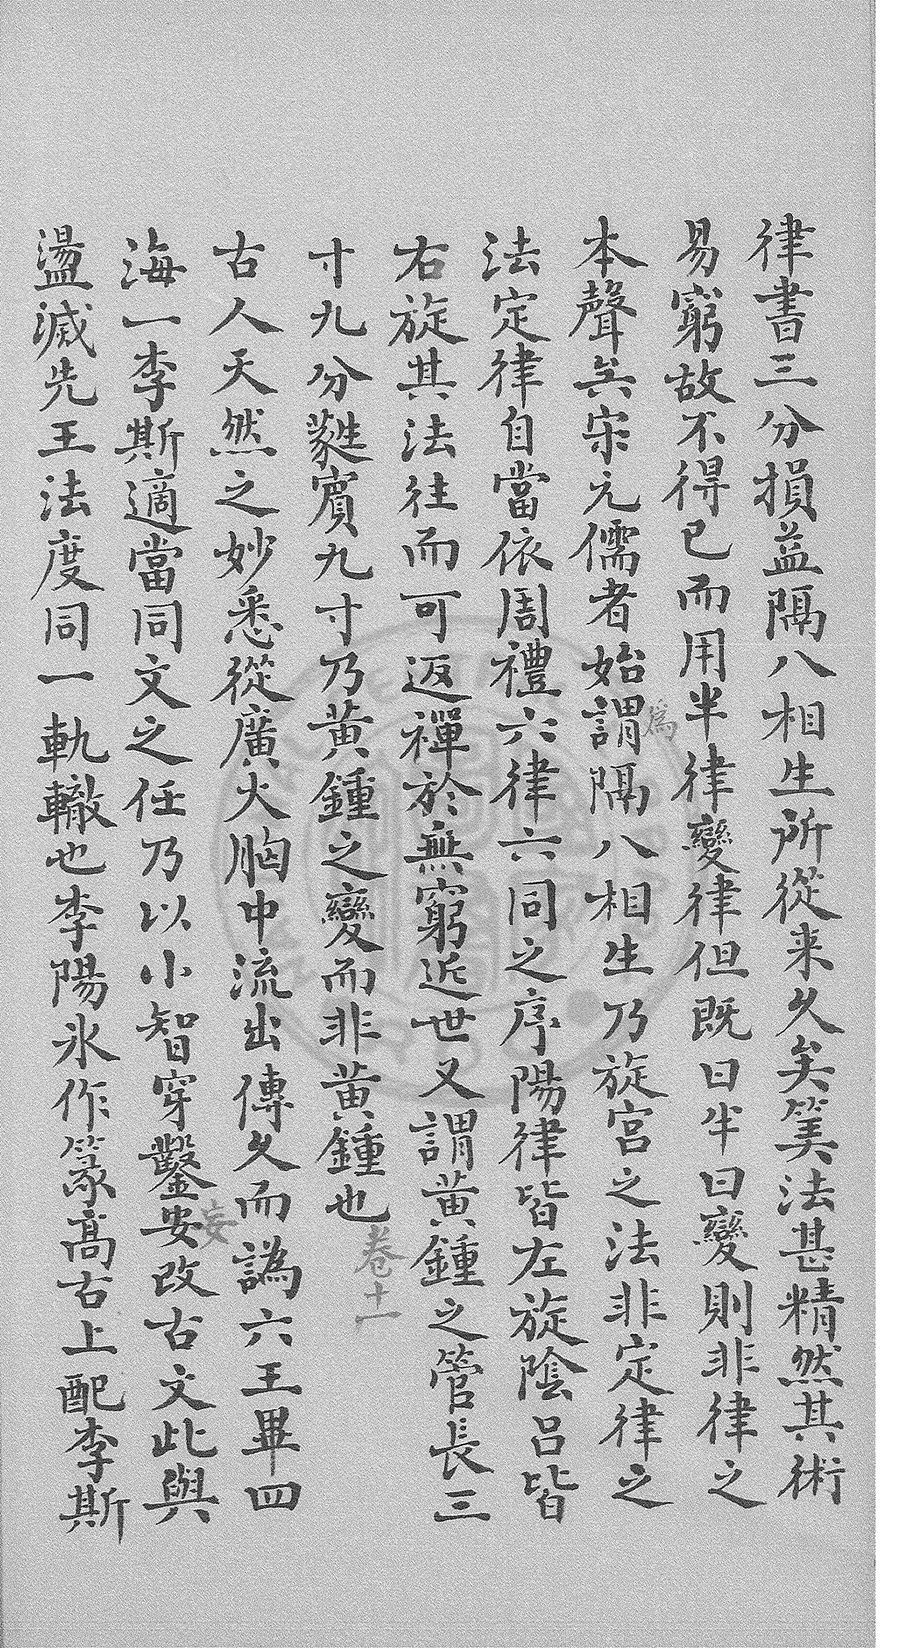 律書三分損益隔八相生所從来久矣筭法甚精然其術
易窮故不得已而用半律變律但既曰半曰變則非律之
為
本聲矣宋元儒者始謂隔八相生乃旋宮之法非定律之
法定律自當依周禮六律六同之序陽律皆左旋陰呂皆
右旋其法往而可返禪於無窮近世又謂黄鍾之管長三
寸九分蕤賓九寸乃黄鍾之變而非黄鍾也
卷十一
古人天然之妙悉從廣大胸中流出傳久而譌六王畢四
海一李斯適當同文之任乃以小智穿鑿安改古文此與
妄
盪滅先王法度同一軌轍也李陽氷作篆高古上配李斯